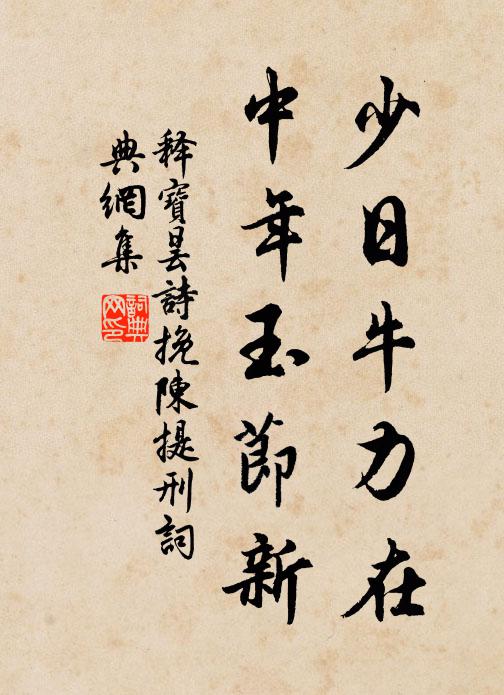 少日牛力在
中年玉節新
釋寶曇詩挽陳提刑詞
典網集
詞典網印